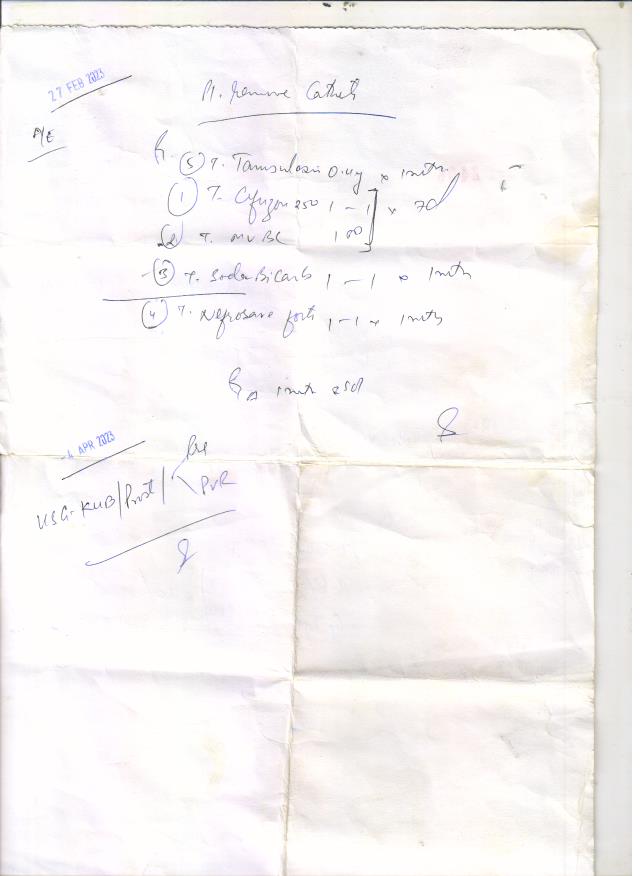 27 FEB 2023
Pl. remove Catheter
P/E
(5) T. Tamsulosin 0.4g x 1mth
(1) T. 250 1 - 1 x 7d
(2) T. MVBC 1 OD
(3) T. Soda Bicarb 1 - 1 x 1mth
(4) T. Nefrosave forte 1 - 1 x 1mth
1mth
4 APR 2023
USG-KUB/Prost/
Pre
PVR